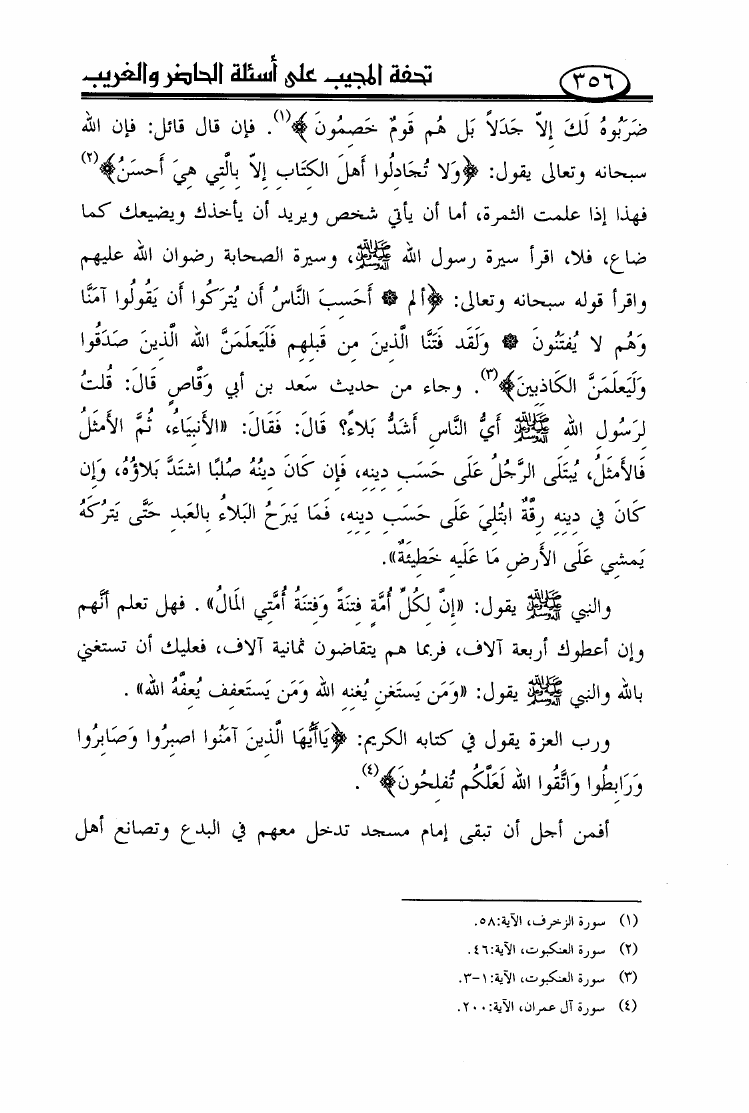 ٣٥٦ تحفة المجيب على أسئلة الحاضر والغريب
ضَرَبُوهُ لَكَ إِلاَّ جَدَلاً بَل هُم قَومٌ خَصِمُونَ﴾(١). فإن قال قائل: فإن الله
سبحانه وتعالى يقول: ﴿وَلا تُجَادِلُوا أَهلَ الكِتَابِ إِلاّ بِالَّتِي هِيَ أَحسَنُ﴾(٢)
فهذا إذا علمت الثمرة، أما أن يأتي شخص ويريد أن يأخذك ويضيعك كما
ضاع، فلا، اقرأ سيرة رسول الله ﷺ، وسيرة الصحابة رضوان الله عليهم
واقرأ قوله سبحانه وتعالى: ﴿ألم ۞ أَحَسِبَ النَّاسُ أَن يُترَكُوا أَن يَقُولُوا آمَنَّا
وَهُم لا يُفتَنُونَ ۞ وَلَقَد فَتَنَّا الَّذِينَ مِن قَبلِهِم فَلَيَعلَمَنَّ الله الَّذِينَ صَدَقُوا
وَلَيَعلَمَنَّ الكَاذِبِينَ﴾(٣). وجاء من حديث سَعد بن أبي وَقَّاصٍ قَالَ: قُلتُ
لِرَسُولِ الله ﷺ أَيُّ النَّاسِ أَشَدُّ بَلاءً؟ قَالَ: فَقَالَ: «الأَنبِيَاءُ، ثُمَّ الأَمثَلُ
فَالأَمثَلُ، يُبتَلَى الرَّجُلُ عَلَى حَسَبِ دِينِهِ، فَإِن كَانَ دِينُهُ صُلبًا اشتَدَّ بَلاؤُهُ، وَإِن
كَانَ في دِينِهِ رِقَّةٌ ابتُلِيَ عَلَى حَسَبِ دِينِهِ، فَمَا يَبرَحُ البَلاءُ بِالعَبدِ حَتَّى يَترُكَهُ
يَمشِي عَلَى الأَرضِ مَا عَلَيهِ خَطِيئَةٌ».
والنبي ﷺ يقول: «إِنَّ لِكُلِّ أُمَّةٍ فِتنَةً وَفِتنَةُ أُمَّتِي المَالُ». فهل تعلم أنَّهم
وإن أعطوك أربعة آلاف، فربما هم يتقاضون ثمانية آلاف، فعليك أن تستغني
بالله والنبي ﷺ يقول: «وَمَن يَستَغنِ يُغنِهِ الله وَمَن يَستَعفِف يُعِفَّهُ الله».
ورب العزة يقول في كتابه الكريم: ﴿يَاأَيُّهَا الَّذِينَ آمَنُوا اصبِرُوا وَصَابِرُوا
وَرَابِطُوا وَاتَّقُوا الله لَعَلَّكُم تُفلِحُونَ﴾(٤).
أفمن أجل أن تبقى إمام مسجد تدخل معهم في البدع وتصانع أهل
(١) سورة الزخرف، الآية:٥٨.
(٢) سورة العنكبوت، الآية:٤٦.
(٣) سورة العنكبوت، الآية:١-٣.
(٤) سورة آل عمران، الآية:٢٠٠.